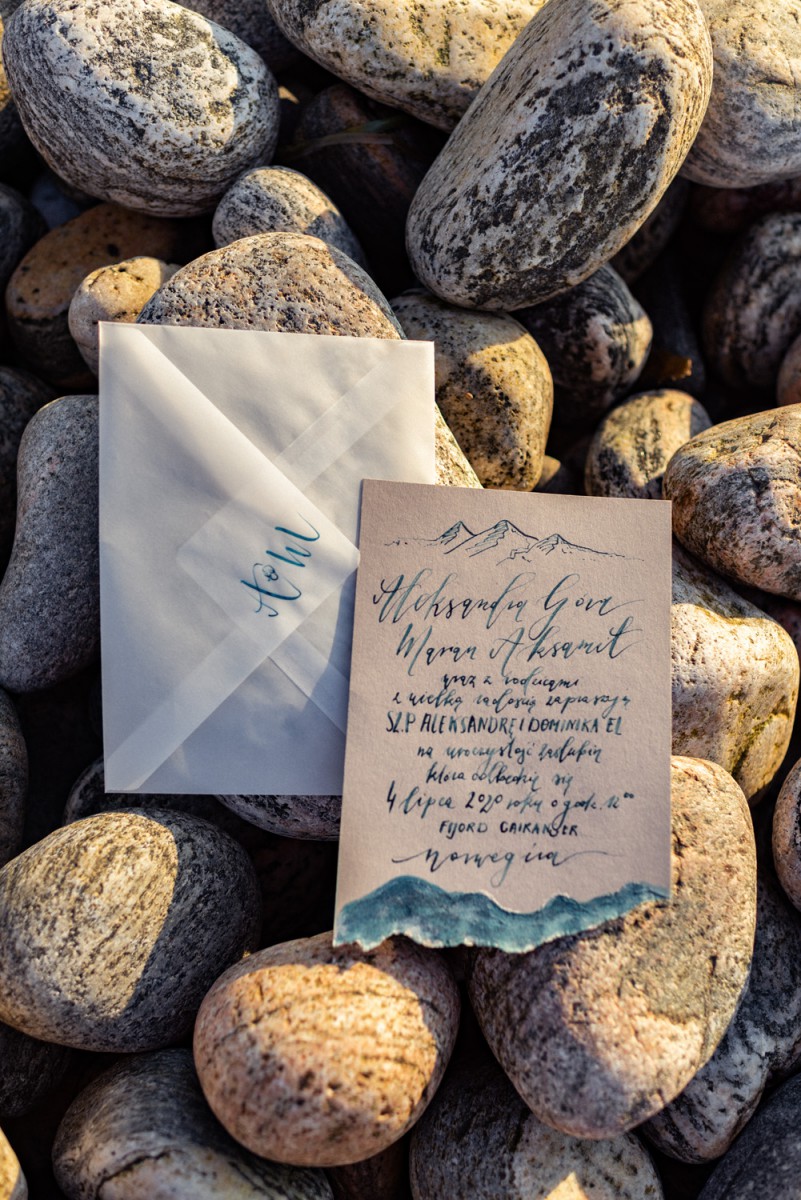 A&M
Aleksandra Góra
Maran Aksamit
wraz z rodzicami
z wielką radością zapraszają
SZ.P ALEKSANDRĘ I DOMINIKA EL
na uroczystość zaślubin
która odbędzie się
4 lipca 2020 roku o godz. 12⁰⁰
FIJORD GAIRANGER
Norwegia